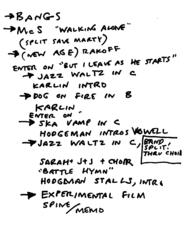 → BANGS
→ McS "WALKING ALONE"
(SPLIT SAVE MARTY)
→ (NEW AGE) RAKOFF
ENTER ON "BUT I LEAVE AS HE STARTS"
→ JAZZ WALTZ IN C
KARLIN INTRO
→ DOG ON FIRE IN B
KARLIN
ENTER ON -
→ SKA VAMP IN C
HODGEMAN INTROS VOWELL
→ JAZZ WALTZ IN C,
BAND SPLIT!
THRU CHOIR
SARAH + J+J + CHOIR
"BATTLE HYMN"
HODGMAN STALLS, INTRO
→ EXPERIMENTAL FILM
SPINE/MEMO